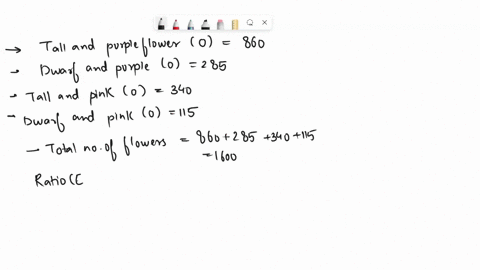 → Tall and purple flower (O) = 860
→ Dwarf and purple (O) = 285
- Tall and pink (O) = 340
- Dwarf and pink (O) = 115
- Total no. of flowers = 860 + 285 + 340 + 115
= 1600
Ratio (E